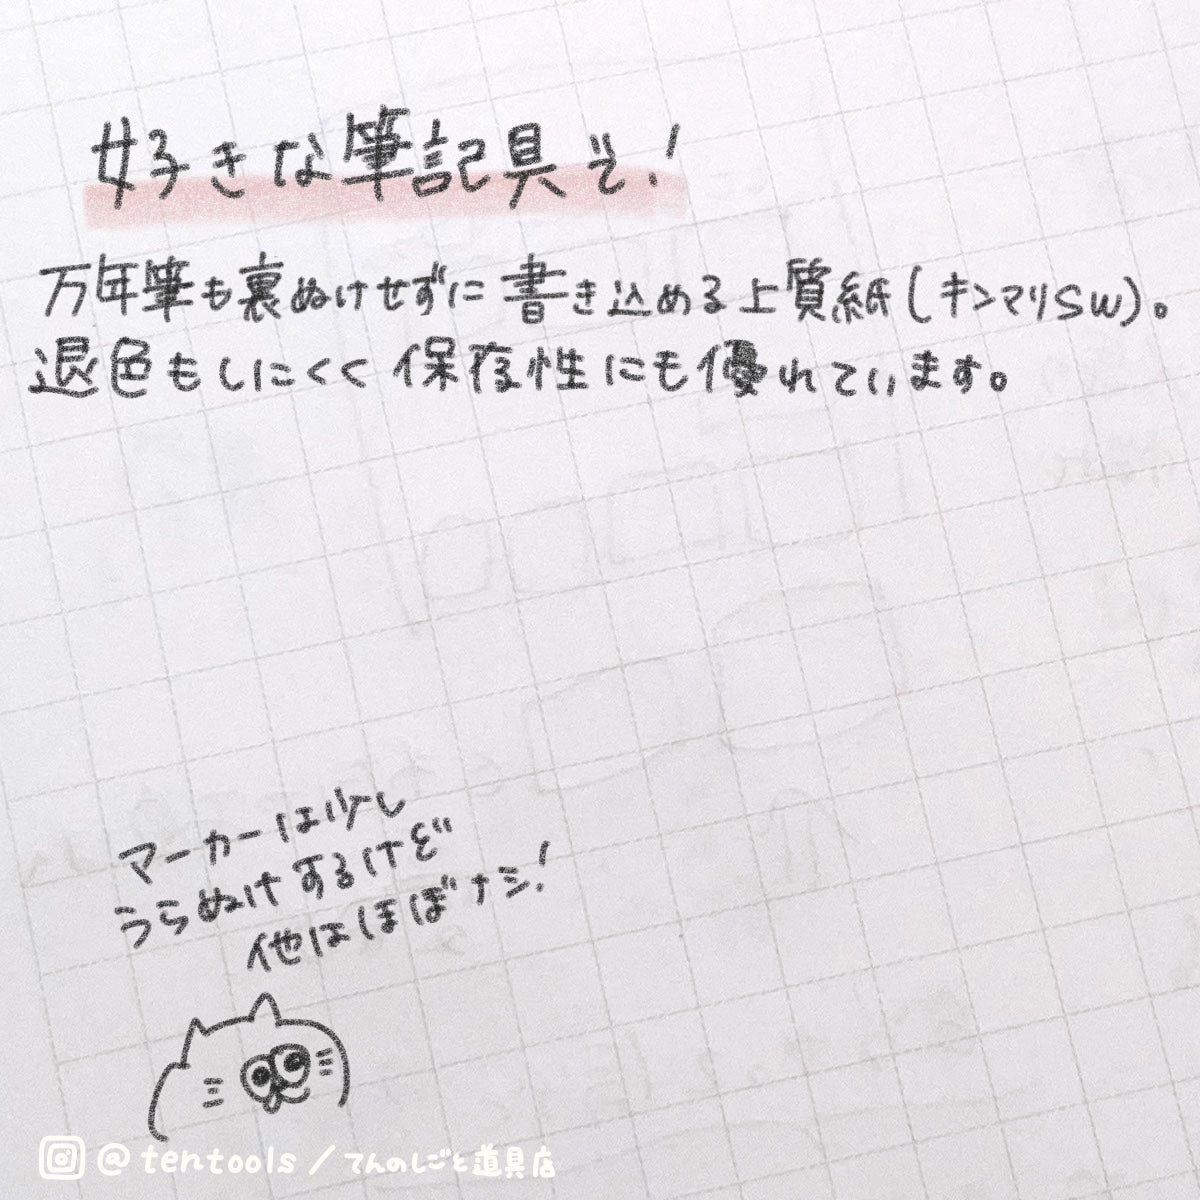 好きな筆記具で!
万年筆も裏ぬけせずに書き込める上質紙(キンマリSW)。
退色もしにくく保存性にも優れています。
マーカーは少し
うらぬけするけど
他はほぼナシ!
@tentools/てんのしごと道具店